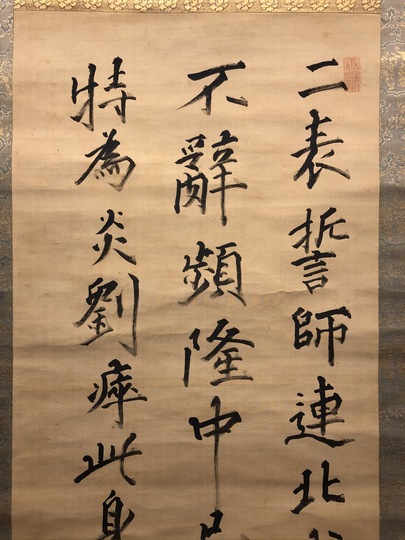 二表誓師連北
不辭頻隆中
特為炎劉瘁此身